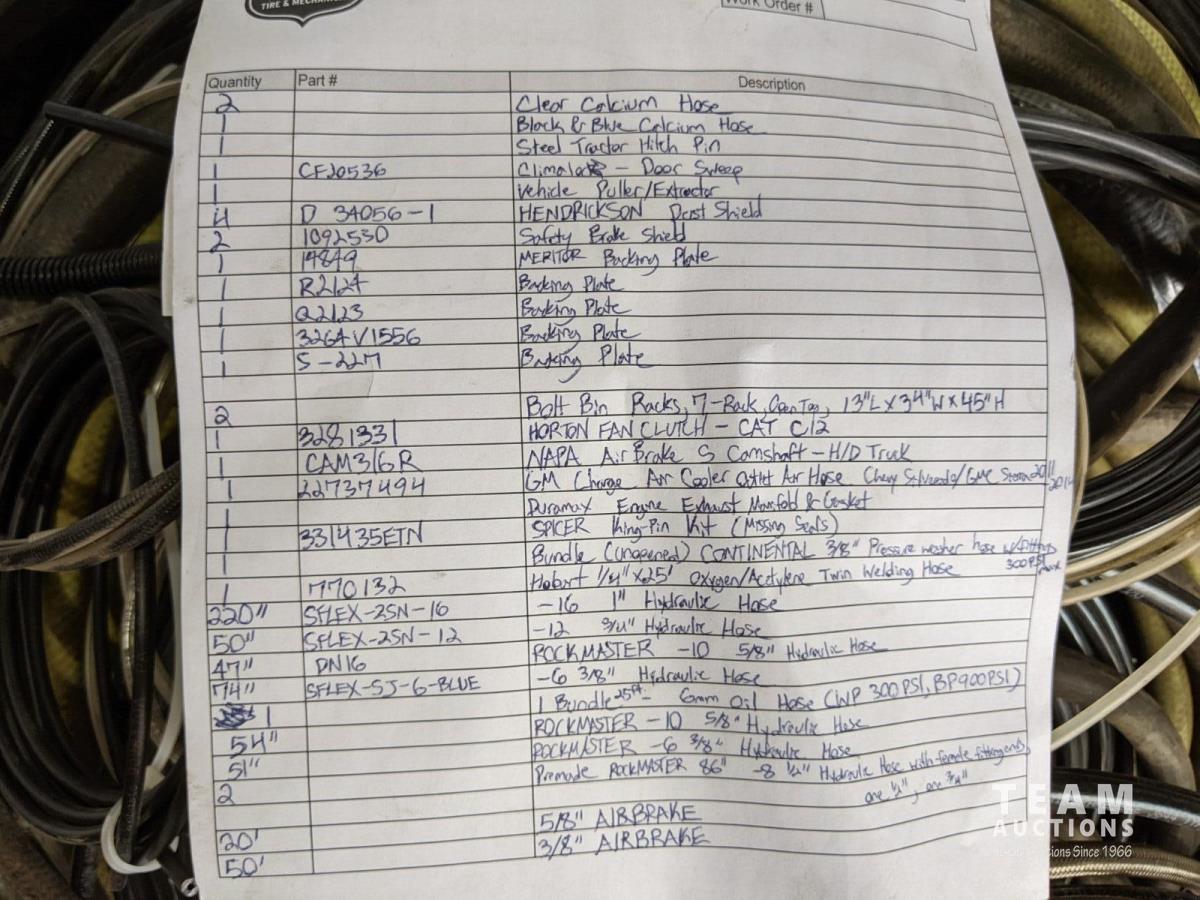 TIRE & MECHANICAL
Work Order #
Quantity Part # Description
2 Clear Calcium Hose
1 Black & Blue Calcium Hose
1 Steel Tractor Hitch Pin
1 CF20536 Climaloc - Door Sweep
1 Vehicle Puller/Extractor
4 D 34056-1 HENDRICKSON Dust Shield
2 1092530 Safety Brake Shield
1 14849 MERITOR Backing Plate
1 R2124 Backing Plate
1 Q2123 Backing Plate
1 3264V1556 Backing Plate
1 S-227 Backing Plate
2 Bolt Bin Racks, 7-Rack, Open Top, 13"L X 34"W X 45"H
1 3281331 HORTON FAN CLUTCH - CAT C12
1 CAM316R NAPA Air Brake S Camshaft - H/D Truck
1 22737494 GM Charge Air Cooler Outlet Air Hose Chevy Silverado/GMC Sierra 2011
2014
1 Duramax Engine Exhaust Manifold & Gasket
1 331435ETN SPICER King-Pin Kit (Missing Seals)
1 Bundle (unopened) CONTINENTAL 3/8" Pressure washer hose w/fittings
300PSI
1 770132 Hobart 1/4" X 25' Oxygen/Acetylene Twin Welding Hose
220" SFLEX-2SN-16 -16 1" Hydraulic Hose
50" SFLEX-2SN-12 -12 3/4" Hydraulic Hose
47" DN16 ROCKMASTER -10 5/8" Hydraulic Hose
74" SFLEX-SJ-6-BLUE -6 3/8" Hydraulic Hose
1 1 Bundle 25ft - 6mm Oil Hose (WP 300PSI, BP900PSI)
54" ROCKMASTER -10 5/8" Hydraulic Hose
51" ROCKMASTER -6 3/8" Hydraulic Hose
2 Premade ROCKMASTER 86" -8 1/2" Hydraulic Hose with female fitting ends
one 1/2", one 3/4"
20' 5/8" AIRBRAKE
50' 3/8" AIRBRAKE
TEAM
AUCTIONS
Since 1966